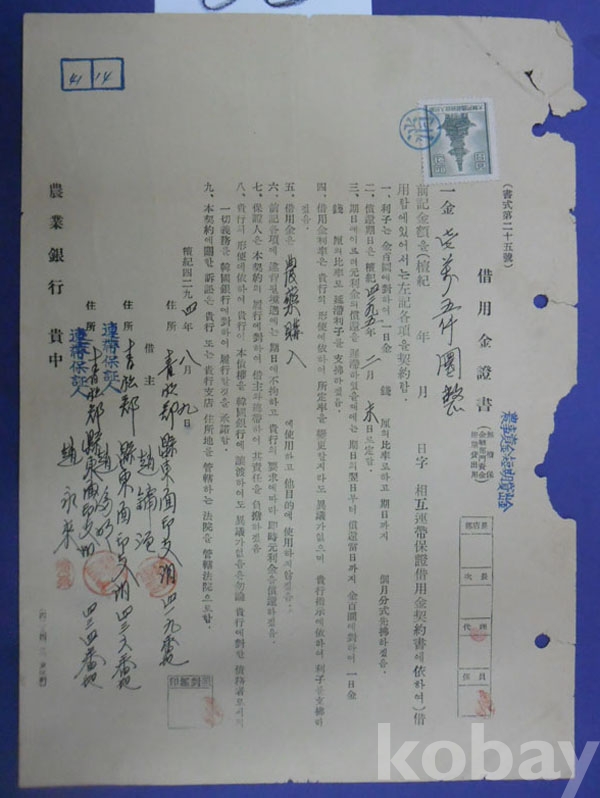 (書式第二十五號)
借用金證書
農事資金短期貸出金
一金 壱萬五仟圜整
前記金額을(檀紀 年 月 日字 相互連帶保證借用金契約書에依하여)借
用함에있어서는左記各項을契約함.
一、利子는金百圜에對하여一日金 錢 厘의比率로하고期日까지 個月分式先拂하겠음.
二、償還期日은檀紀四二九五年二月末日로定함.
三、期日에이르러元利金의償還을遲滯하였을때에는期日의翌日부터償還當日까지金百圜에對하여一日金
錢 厘의比率로延滯利子를支拂하겠음.
四、借用金利率은貴行의形便에依하여所定率을變更할지라도異議가없으며貴行指示에依하여利子를支拂하
겠음.
五、借用金은 農藥購入 에使用하고他目的에使用하지않겠음.
六、前記各項에違背될境遇에는期日에不拘하고貴行의要求에따라即時元利金을償還하겠음.
七、保證人은本契約의履行에對하여借主와連帶하여其責任을負擔하겠음.
八、貴行의形便에依하여本債權을韓國銀行에讓渡하여도異議가없음은勿論貴行에對한債務者로서의
一切義務를韓國銀行에對하여履行할것을承諾함.
九、本契約에關한訴訟은貴行또는貴行支店住所地를管轄하는法院을管轄法院으로함.
檀紀四二九四年八月九日
住所 青松郡縣東面印支洞四一九番地
借主 趙鏞
住所 青松郡縣東面印支洞四三六番地
連帶保証人 趙
住所 青松郡縣東面印支洞四三四番地
連帶保証人 趙永来
農業銀行 貴中
41 14
次長
代理
係員
kobay